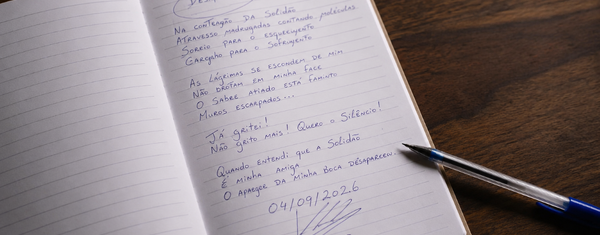 Na contenção da solidão
Atravesso madrugadas contando moléculas
Sorrio para o esquecimento
Gargalho para o sofrimento
As lágrimas se escondem de mim
Não brotam em minha face
O sabre afiado está faminto
Muros escarpados...
Já gritei!
Não grito mais! Quero o silêncio!
Quando entendi que a solidão
É minha amiga
O amargor da minha boca desapareceu.
04/09/2026